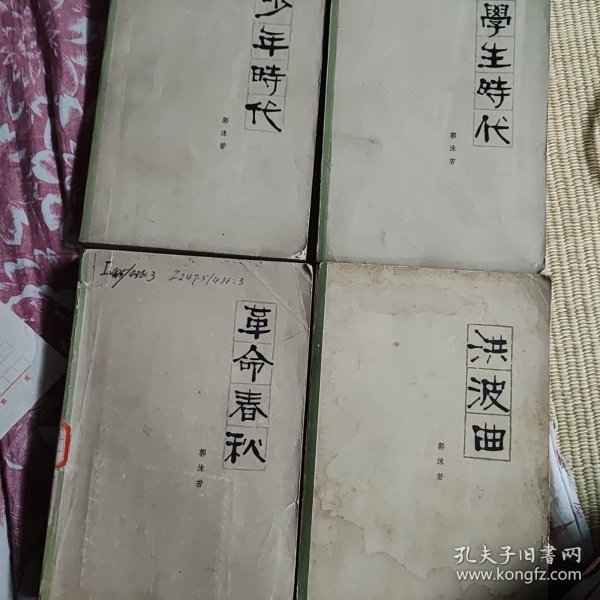 少年時代
郭沫若
學生時代
郭沫若
I247.5/416:3
革命春秋
郭沫若
洪波曲
郭沫若
孔夫子旧書网
www.kongfz.com